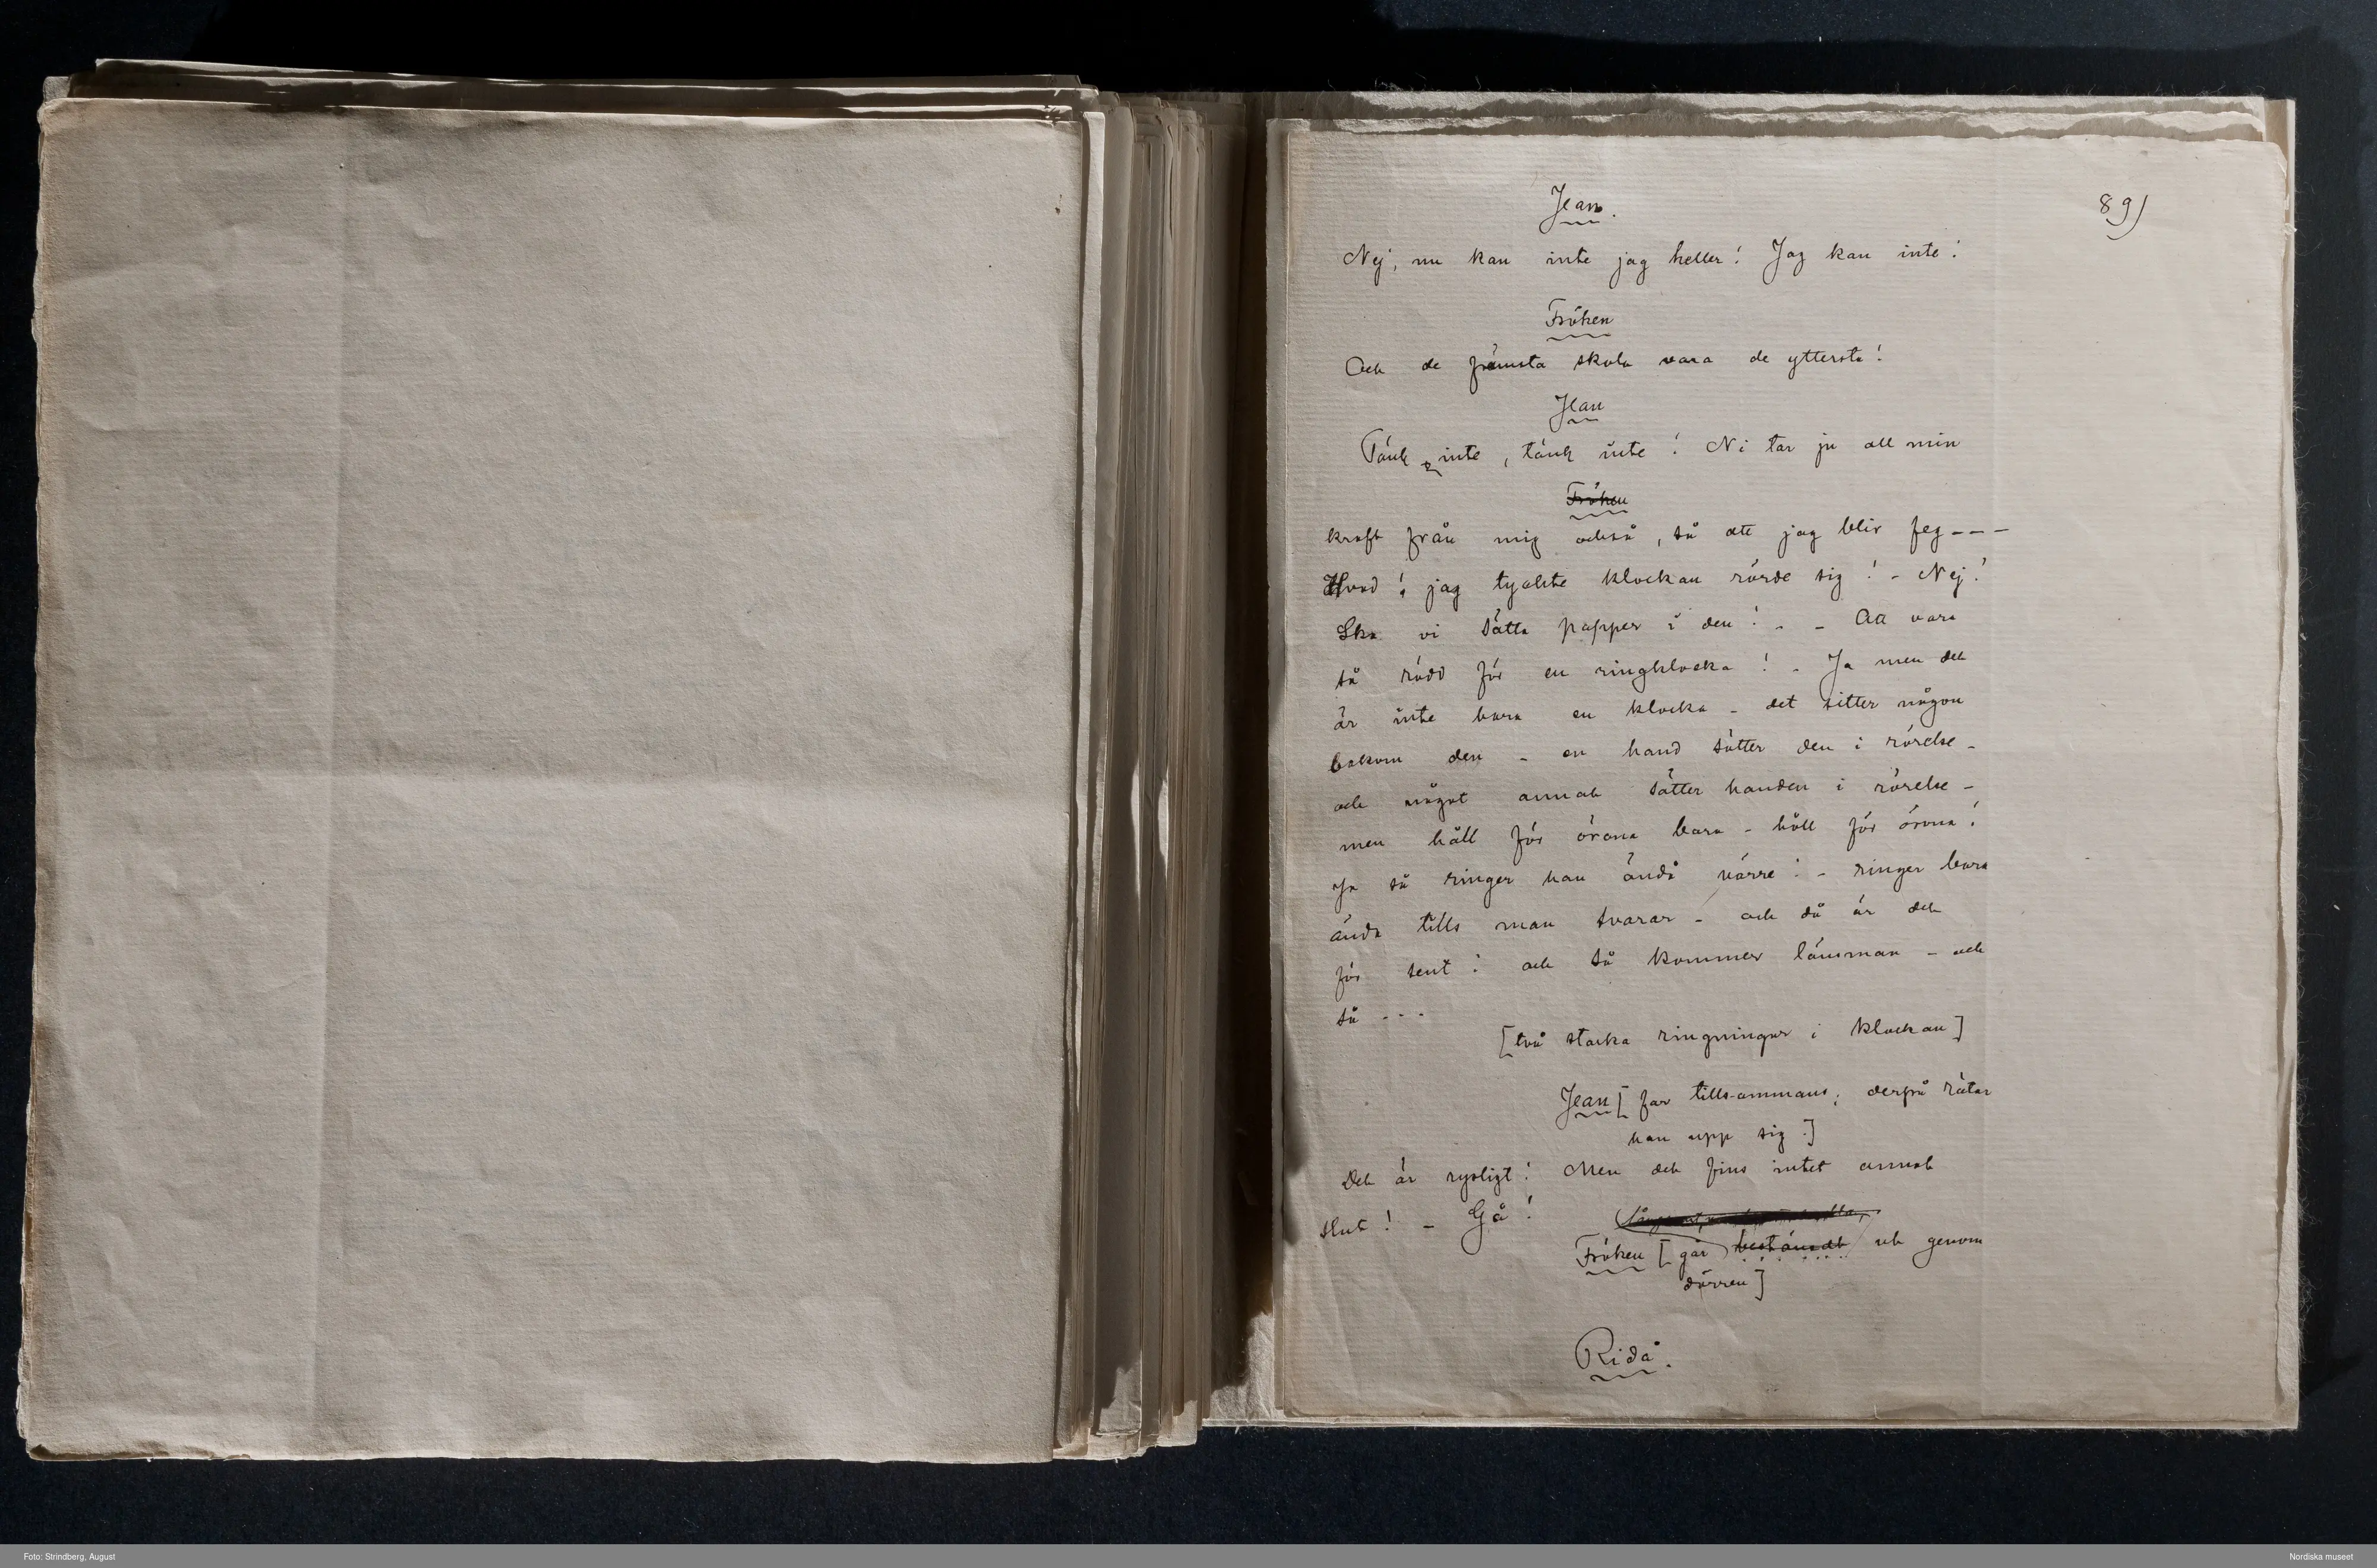 89)
Jean.
Nej, nu kan inte jag heller! Jag kan inte!
Fröken
Och de främsta skola vara de ytterste!
Jean
Tänk inte, tänk inte! Ni tar ju all min
Fröken
kraft från mig också, så att jag blir feg - - -
Hvad! jag tyckte klockan rörde sig! - Nej!
Ska vi sätta papper i den! - - Att vara
så rädd för en ringklocka! - Ja men det
är inte bara en klocka - det sitter någon
bakom den - en hand sätter den i rörelse -
och något annat sätter handen i rörelse -
men håll för örona bara - håll för örona!
Ja så ringer han ändå värre! - ringer bara
ända tills man svarar - och då är det
för sent! och så kommer länsman - och
så - - -
[två starka ringningar i klockan]
Jean [far tillsammans; derpå rätar
han upp sig.]
Det är rysligt! Men det fins intet annat
slut! - Gå!
Fröken [går bestämdt ut genom
dörren]
Ridå.
Foto: Strindberg, August
Nordiska museet